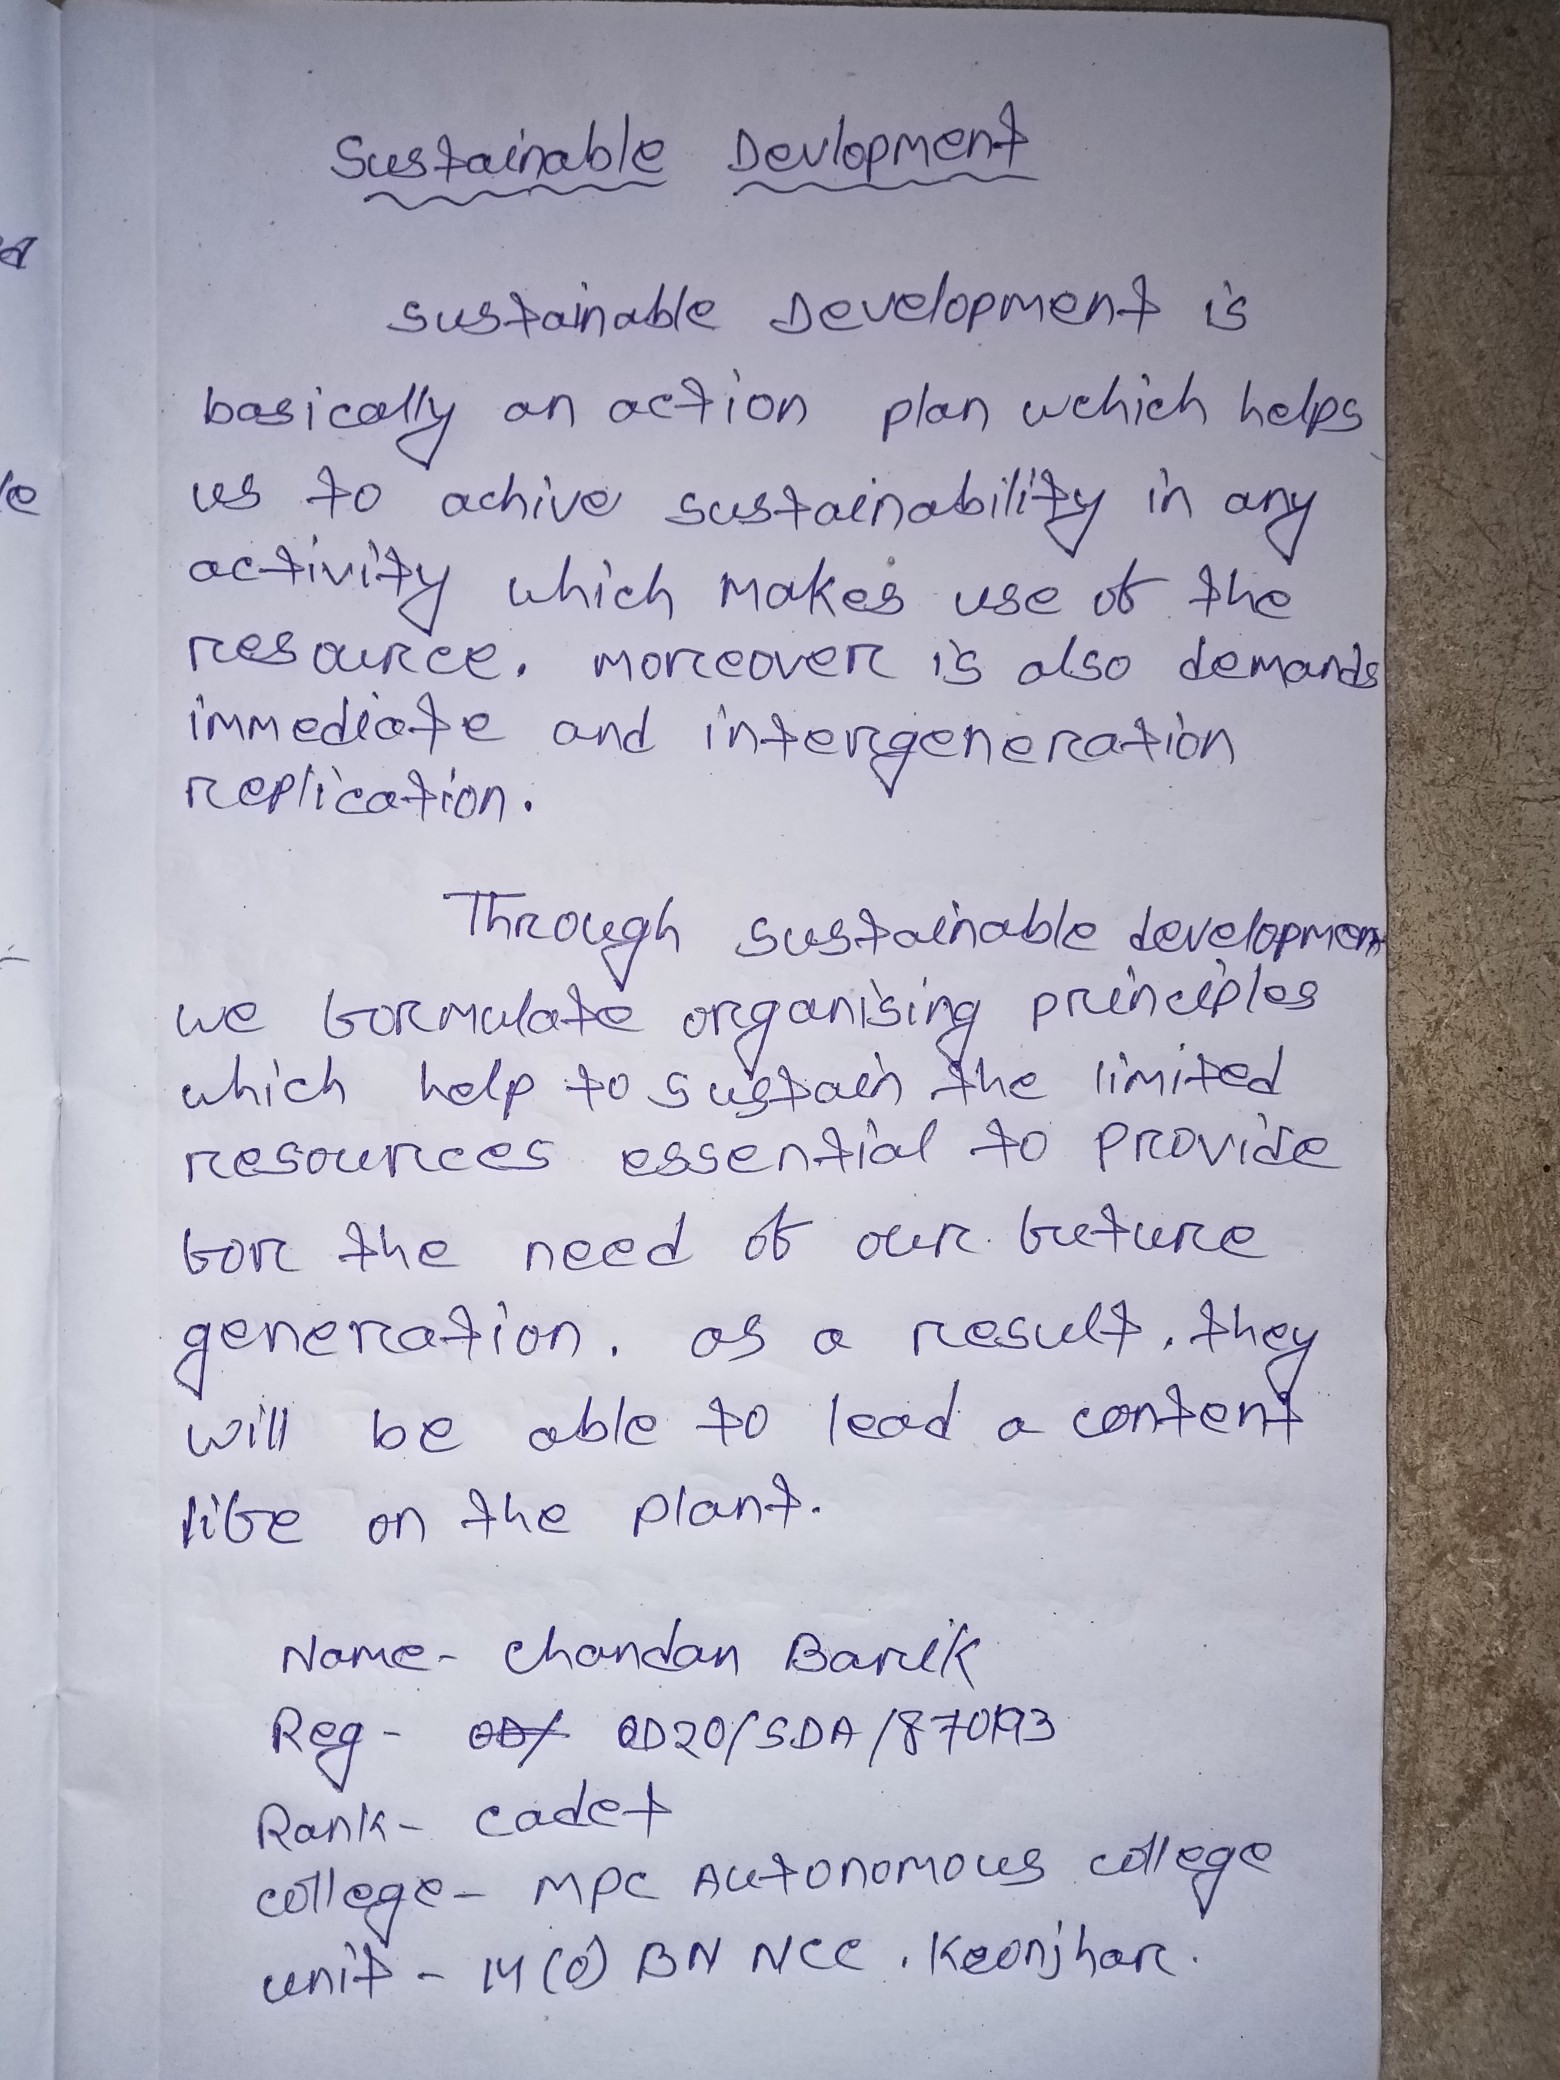 Sustainable Devlopment
sustainable Development is
basically an action plan wchich helps
us to achive sustainability in any
activity which makes use of the
resource. moreover is also demands
immediate and intergeneration
replication.
Through sustainable development
we formulate organising principles
which help to sustain the limited
resources essential to provide
for the need of our future
generation. as a result. they
will be able to lead a content
life on the plant.
Name- Chandan Barik
Reg- OD20/SDA/870193
Rank- cadet
college- MPC Autonomous college
unit - 14 (O) BN NCC . Keonjhar.